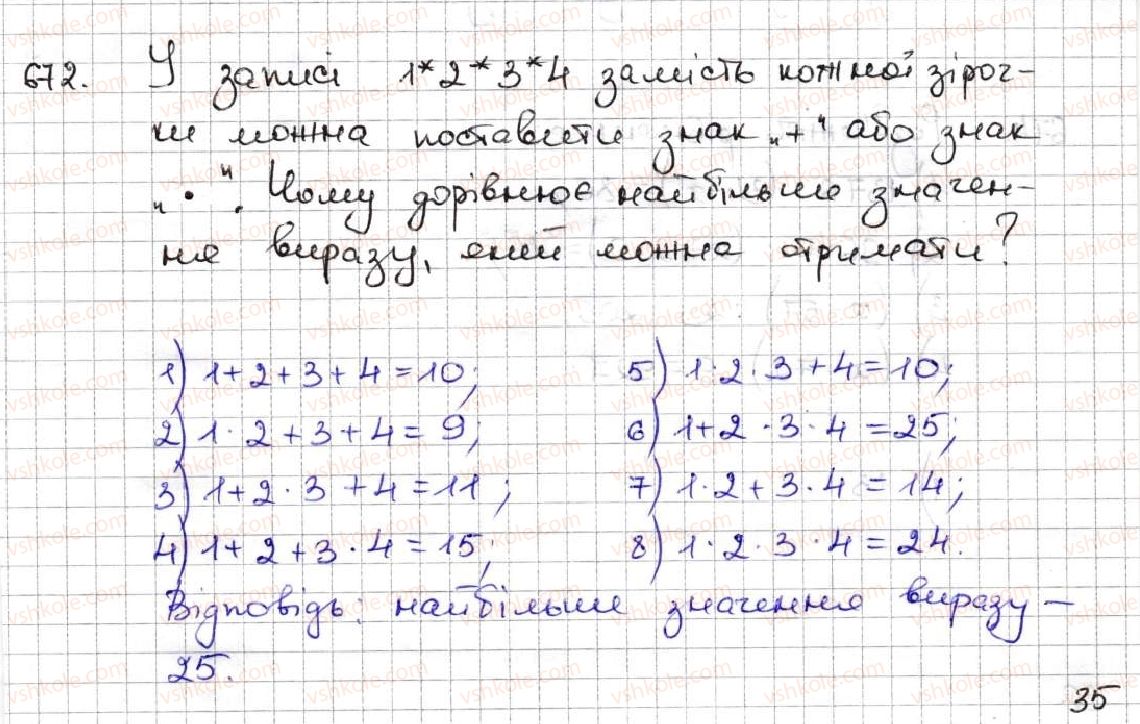 672. У записі 1*2*3*4 замість кожної зіроч-
ки можна поставити знак „+" або знак
„·". Чому дорівнює найбільше значен-
ня виразу, який можна отримати?
1) 1+2+3+4=10; 5) 1·2·3+4=10;
2) 1·2+3+4=9; 6) 1+2·3·4=25;
3) 1+2·3+4=11; 7) 1·2+3·4=14;
4) 1+2+3·4=15; 8) 1·2·3·4=24.
Відповідь: найбільше значення виразу –
25.
35
vshkole.com